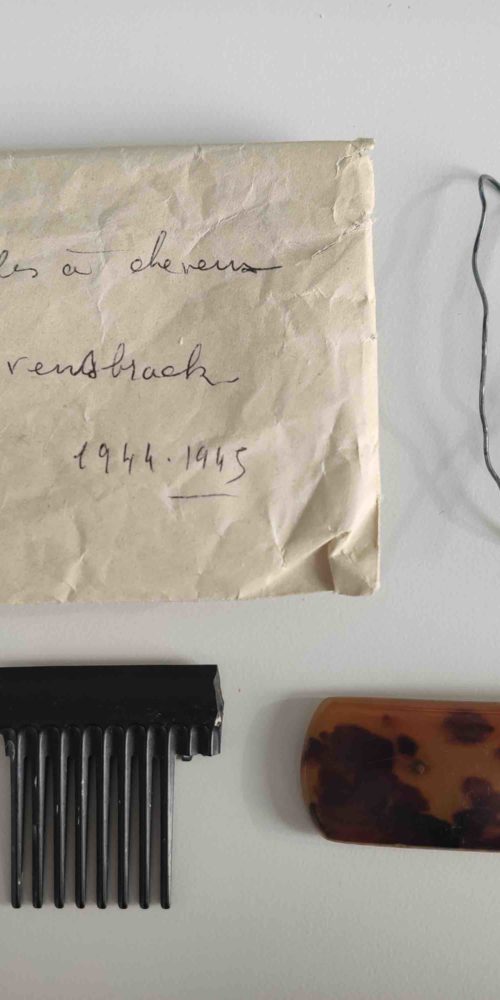 les à cheveux
vensbrack
1944.1945